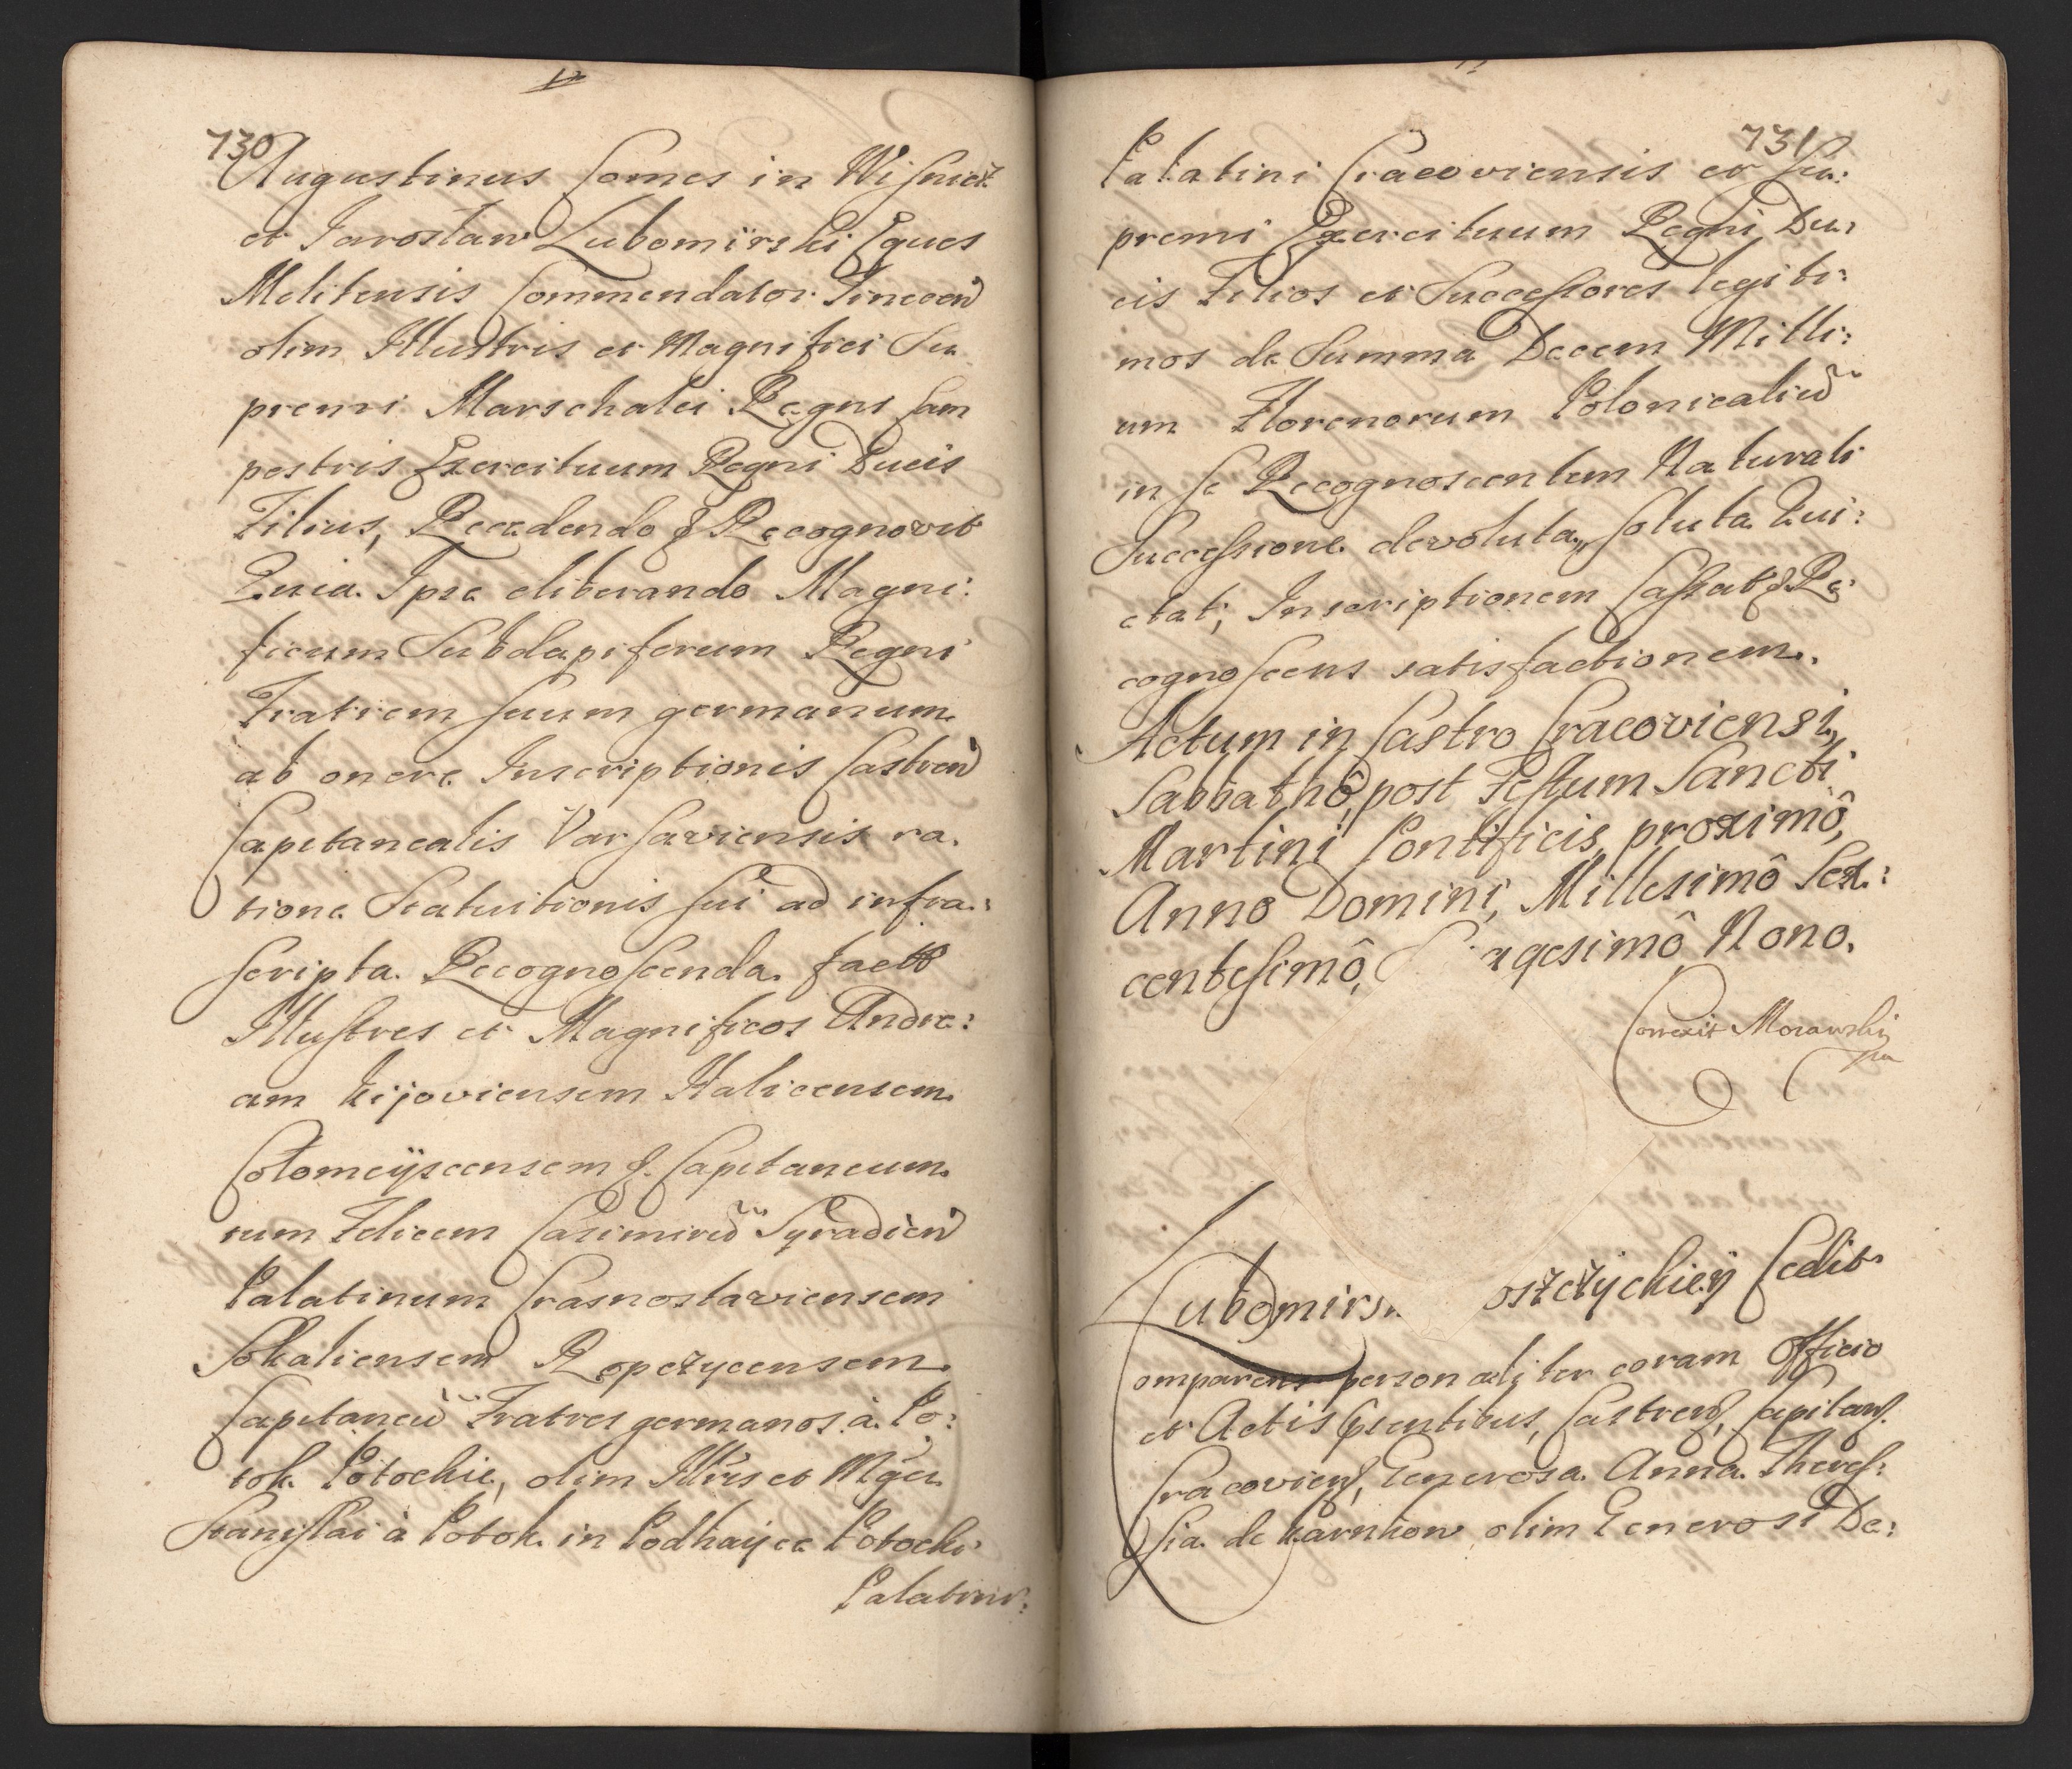 730
Augustinus Comes in Wisnicz
et Jarosław Lubomirski Eques
Melitensis Commendator Tinecen
olim Illustris et Magnifici Su
premi Marschalci Regni Cam
pestris Exercituum Regni Ducis
Filius, Recedendo & Recognovit
Quia Ipse eliberando Magni:
ficum Subdapiferum Regni
Fratrem suum germanum
ab onere Inscriptionis Castren
Capitanealis Varsaviensis ra.
tione Statuitionis sui ad infra:
scripta Recognoscenda factæ
Illustres et Magnificos Andre:
am Kijoviensem Halicensem
Colomeijscensem & Capitaneum
rum Felicem Casimirũ Syradien
Palatinum Crasnostaviensem
Sokaliensem Ropczycensem
Capitaneũ Fratres germanos à Po:
tok Potockie, olim Illris et Mgci
Stanislai à Potok in Podhayce Potocki
Palatini:
731
Palatini Cracoviensis et Su:
premi Exercituum Regni Du:
cis Filios et Successores legiti:
mos de Summa Decem Milli:
um Florenorum Polonicaliũ
in se Recognoscentem Naturali
Successione devoluta, soluta Qui:
etat; Inscriptionem Cassat & Re:
cognoscens satisfactionem.
Actum in Castro Cracoviensi,
Sabbathô, post Festum Sancti
Martini Pontificis, proximô,
Anno Domini, Millesimô Sex:
centesimô, agesimô Nono.
Correxit Morawski
mp
Lubomirs oszczyckiey Cedit
omparens personaliter coram Officio
et Actis pñtibus, Castren, Capitan.
Cracovien, Generosa Anna There:
sia de Karnkow olim Generosi De: